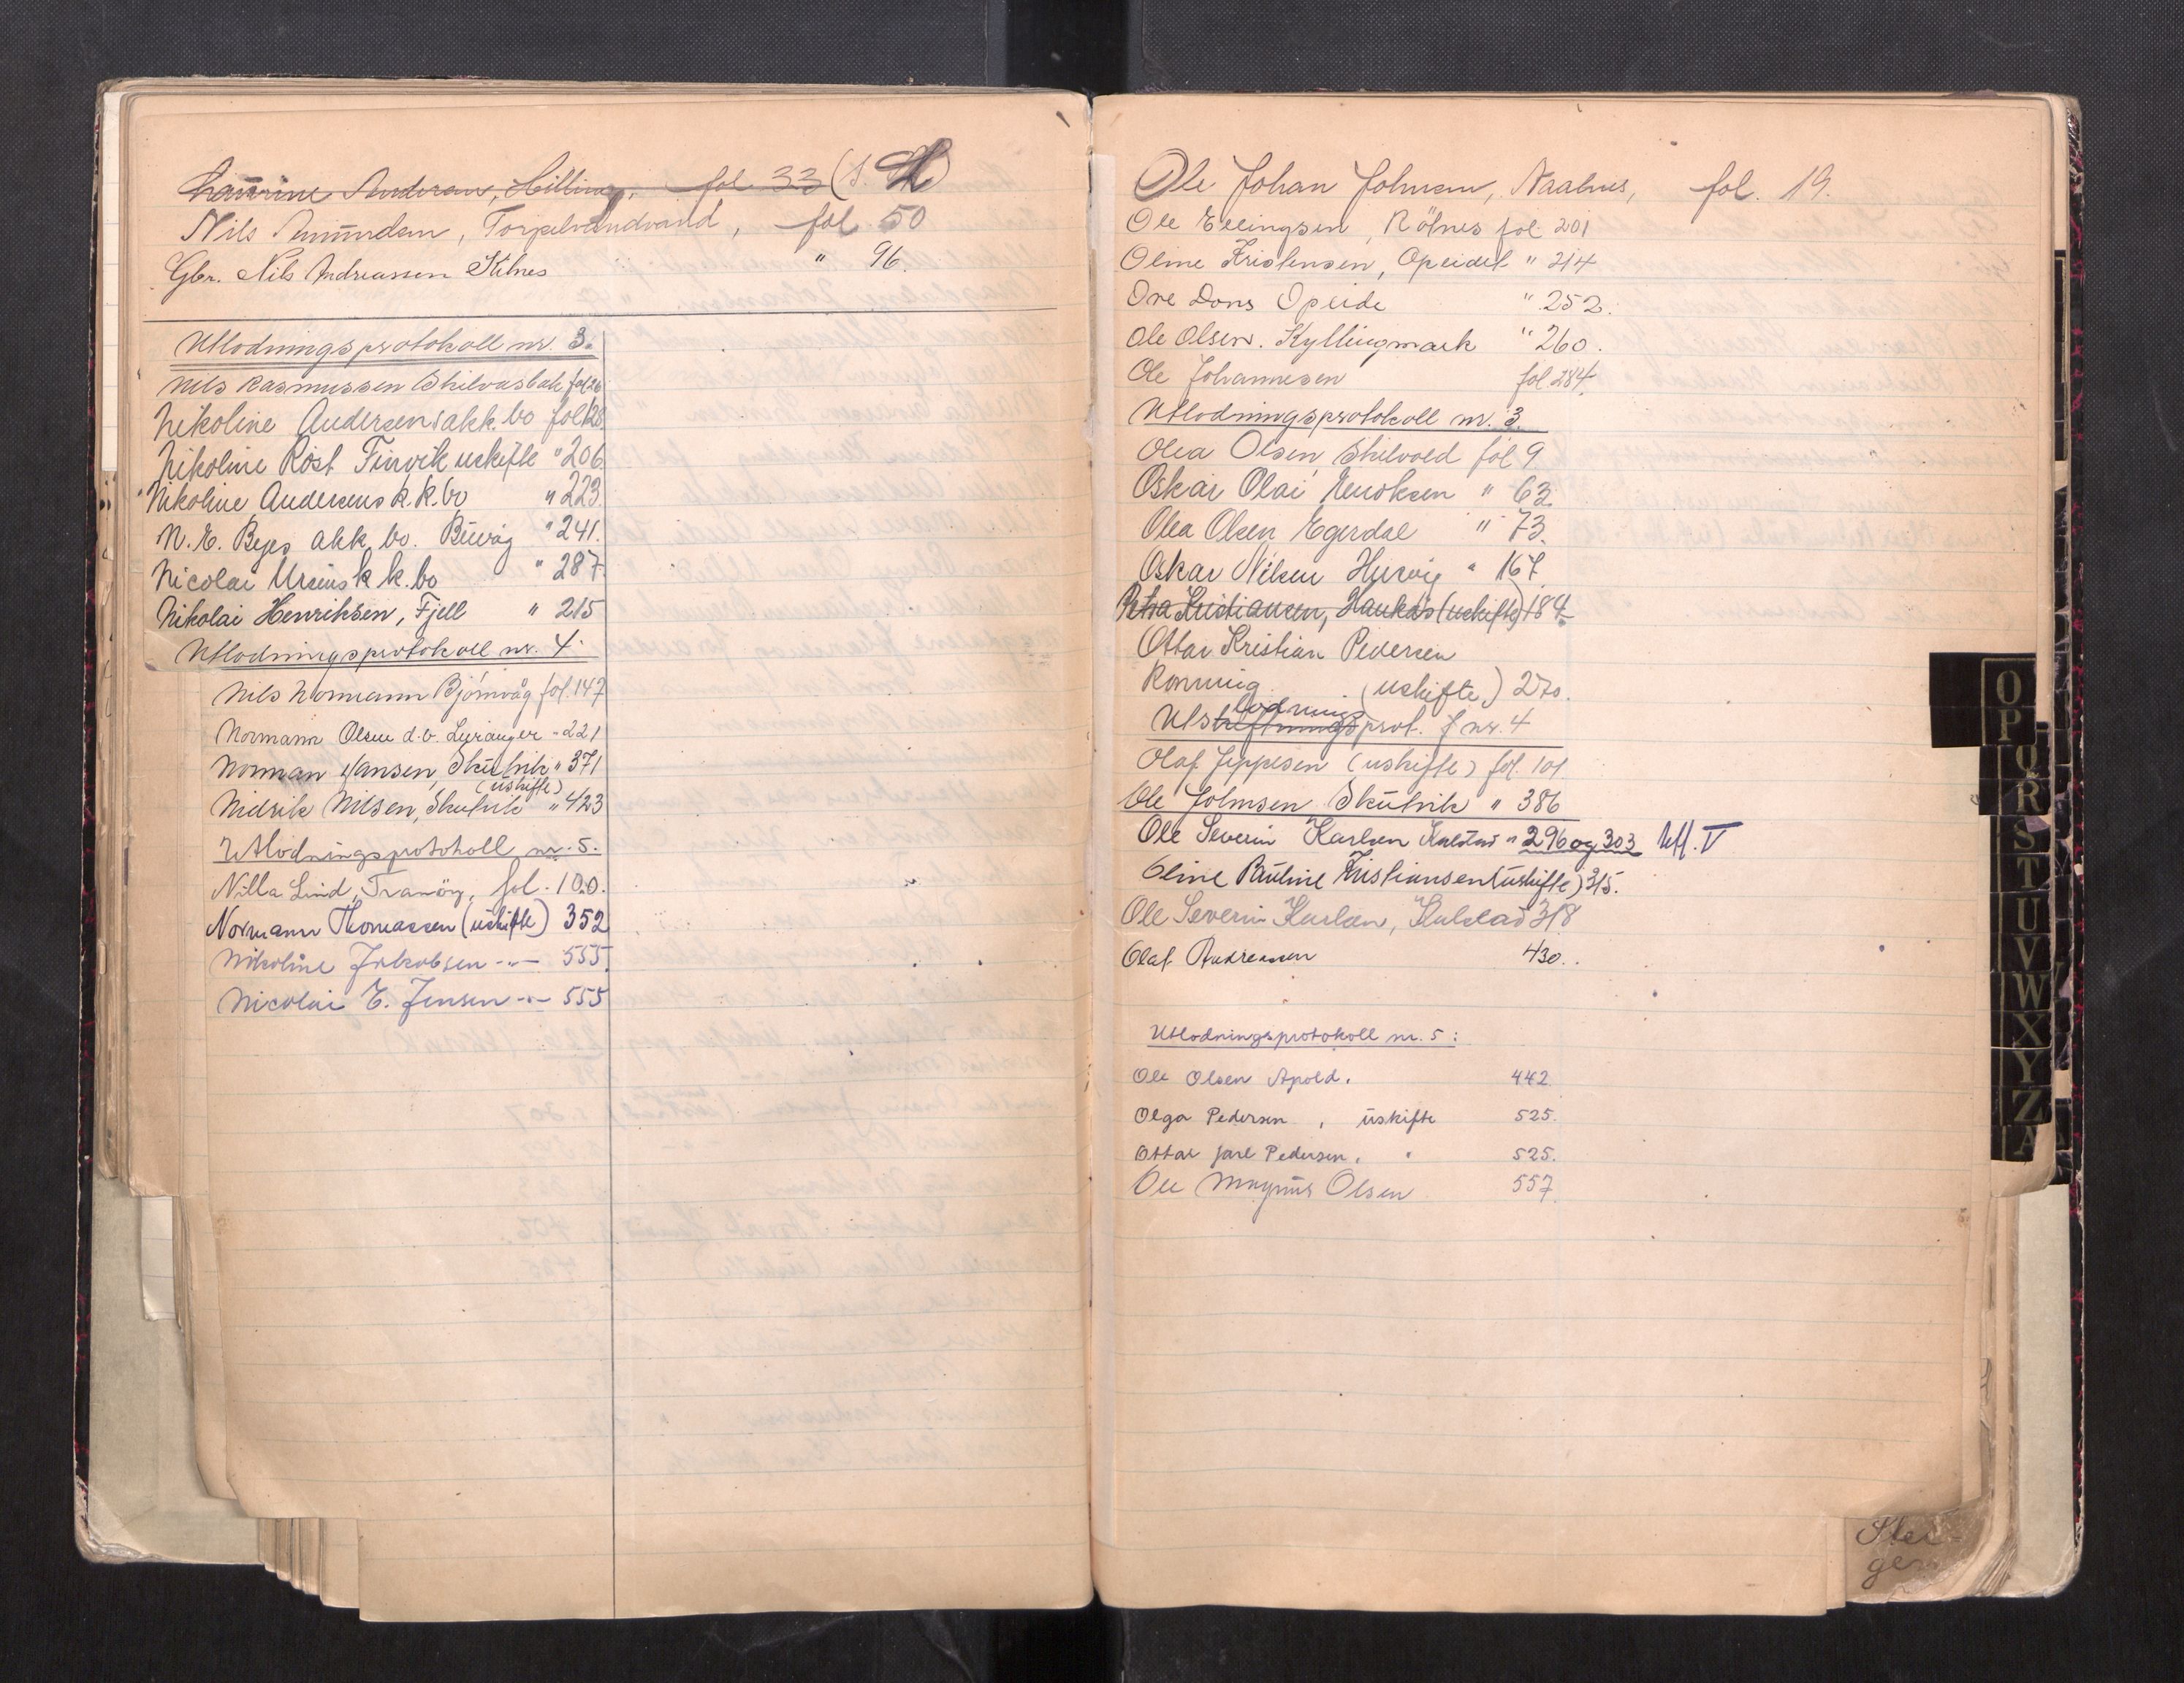 Andersen, Hilling, fol. 33 (S. L)
Nils Amundsen, Torpelvandvand, fol. 50
Gbr. Nils Andreassen Stilnes " 96.
Utlodningsprotokoll nr. 3.
Nils Rasmussen Skilvasbak fol 26
Nikoline Andersens akk. bo fol 128
Nikoline Röst Finvik uskifte " 206
Nikoline Andersens k. k. bo " 223
N. E. Bejes akk. bo. Buvåg " 241.
Nicolai Ursins k. k. bo " 287.
Nikolai Henriksen, Fjell " 215
Utlodningsprotokoll nr. 4.
Nils Normann Bjørnvåg fol. 147
Normann Olsen d. b. Leiranger - 221
Norman Hansen, Skutvik " 371
(uskifte)
Nidrik Nilsen, Skutvik " 423
Utlodningsprotokoll nr. 5.
Nilla Lind, Tranøy, fol. 100.
Normann Thomassen (uskifte) 352
Nikoline Jakobsen -"- 555
Nicolai E. Jensen -"- 555
Ole Johan Johnsen, Naalnes, fol. 19.
Ole Ellingsen, Rötnes fol. 201
Oline Kristensen, Opeidet " 214
Ove Dons Opeide " 252.
Ole Olsen. Kyllingmark " 260.
Ole Johannesen fol. 284.
Utlodningsprotokoll nr. 3.
Olea Olsen, Skilvold fol 9
Oskar Olai Enoksen " 63
Olea Olsen Egerdal " 73.
Oskar Nilsen Husvig " 167
Petra Kristiansen, Haukås (uskifte) 184
Ottar Kristian Pedersen
Rønning (uskifte) 270.
lodnings
Utskiftningsprot. f nr. 4
Olaf Jeppesen (uskifte) fol. 101
Ole Johnsen Skutvik " 386
Ole Severin Karlsen Kalstad " 296 og 303 Utl. V
Oline Pauline Kristiansen (uskifte) 315.
Ole Severin Karlsen, Kalstad 318
Olaf Andreassen 430.
Utlodningsprotokoll nr. 5:
Ole Olsen Apold. 442
Olga Pedersen, uskifte 525.
Ottar Jarl Pedersen. " 525.
Ole Magnus Olsen 557
O
P
Q
R
S
T
U
V
W
X
Y
Z
Stei-
gen